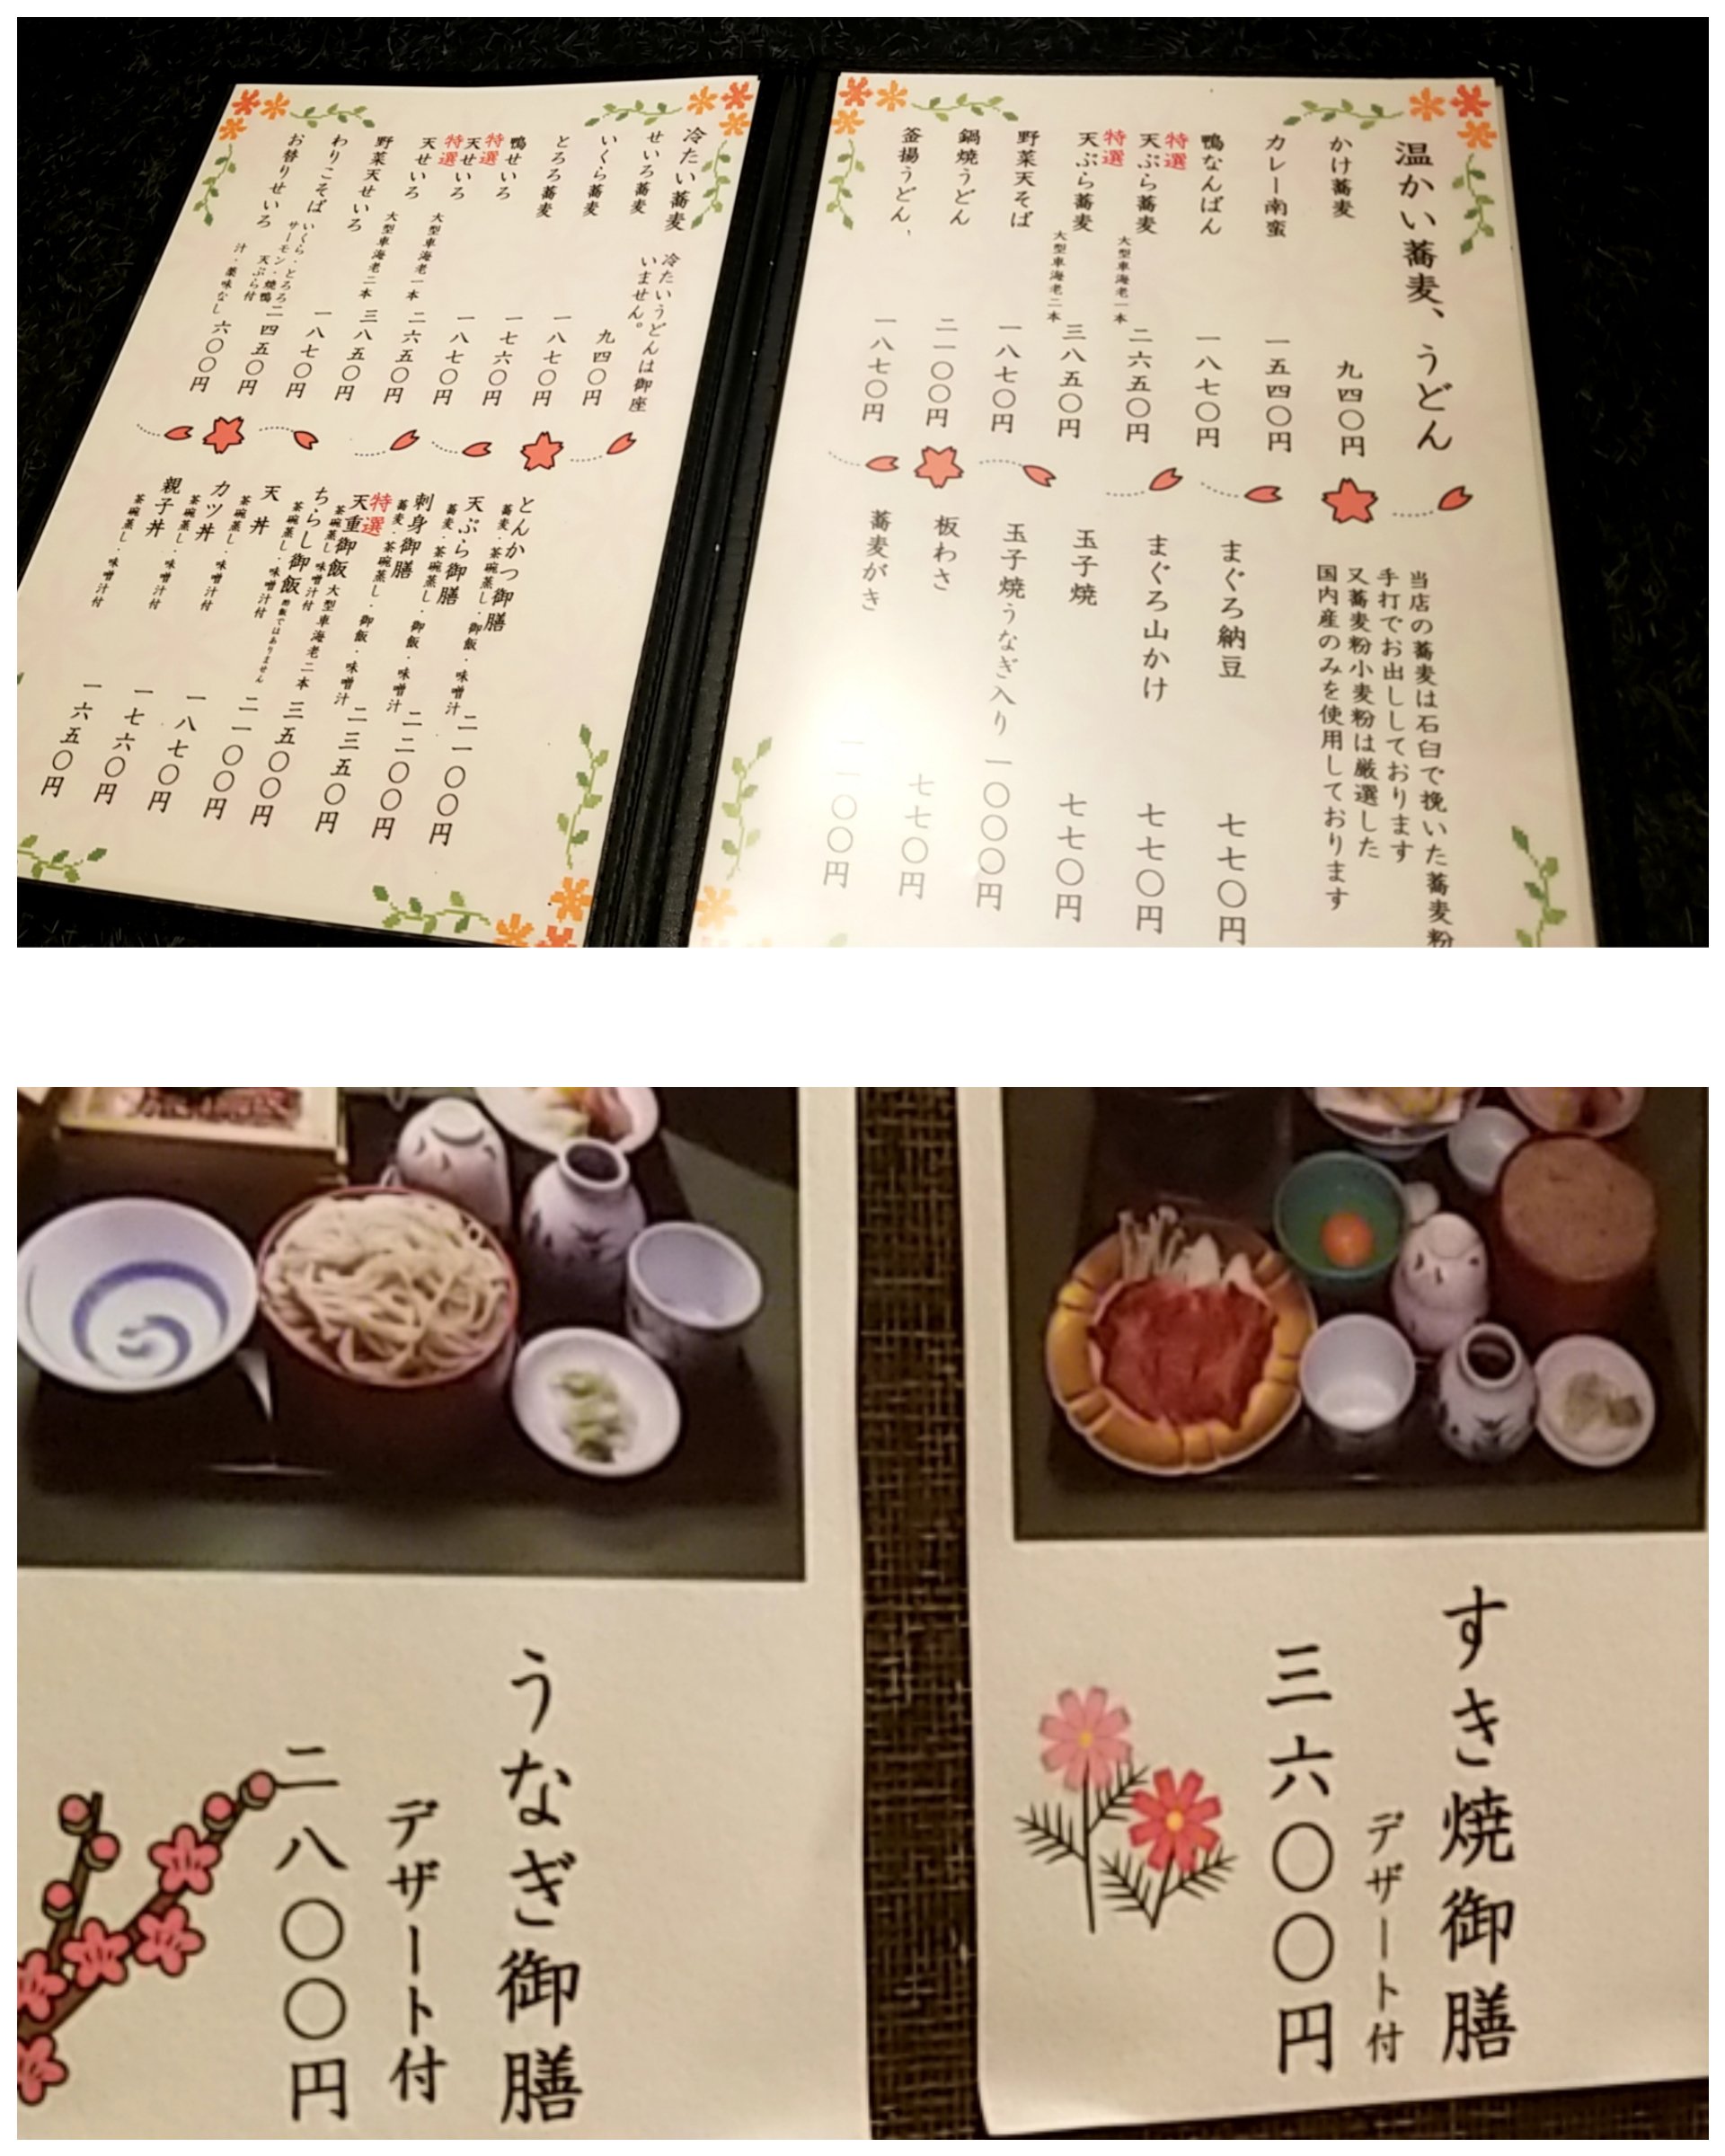 温かい蕎麦、うどん
かけ蕎麦 九四〇円
カレー南蛮 一五四〇円
鴨なんばん 一八七〇円
特選
天ぷら蕎麦 大型車海老一本 二六五〇円
特選
天ぷら蕎麦 大型車海老二本 三八五〇円
野菜天そば 一八七〇円
鍋焼うどん 二一〇〇円
釜揚うどん、 一八七〇円
当店の蕎麦は石臼で挽いた蕎麦粉
手打でお出ししております
又蕎麦粉小麦粉は厳選した
国内産のみを使用しております
まぐろ納豆 七七〇円
まぐろ山かけ 七七〇円
玉子焼 七七〇円
玉子焼うなぎ入り 一〇〇〇円
板わさ 七七〇円
蕎麦がき 一一〇〇円
冷たい蕎麦 冷たいうどんは御座
いません。
せいろ蕎麦 九四〇円
いくら蕎麦 一八七〇円
とろろ蕎麦 一七六〇円
鴨せいろ 一八七〇円
特選
天せいろ 大型車海老一本 二六五〇円
特選
天せいろ 大型車海老二本 三八五〇円
野菜天せいろ 一八七〇円
わりこそば いくら・とろろ
サーモン・焼鴨
天ぷら付 二四五〇円
お替りせいろ 汁・薬味なし 六〇〇円
とんかつ御膳
蕎麦・茶碗蒸し・御飯・味噌汁 二一〇〇円
天ぷら御膳
蕎麦・茶碗蒸し・御飯・味噌汁 二二〇〇円
刺身御膳
蕎麦・茶碗蒸し・御飯・味噌汁 二三五〇円
特選
天重御飯 大型車海老二本 三五〇〇円
茶碗蒸し・味噌汁付
ちらし御飯 酢飯ではありません 二一〇〇円
茶碗蒸し・味噌汁付
天丼 一八七〇円
茶碗蒸し・味噌汁付
カツ丼 一七六〇円
茶碗蒸し・味噌汁付
親子丼 一六五〇円
茶碗蒸し・味噌汁付
すき焼御膳
デザート付
三六〇〇円
うなぎ御膳
デザート付
二八〇〇円